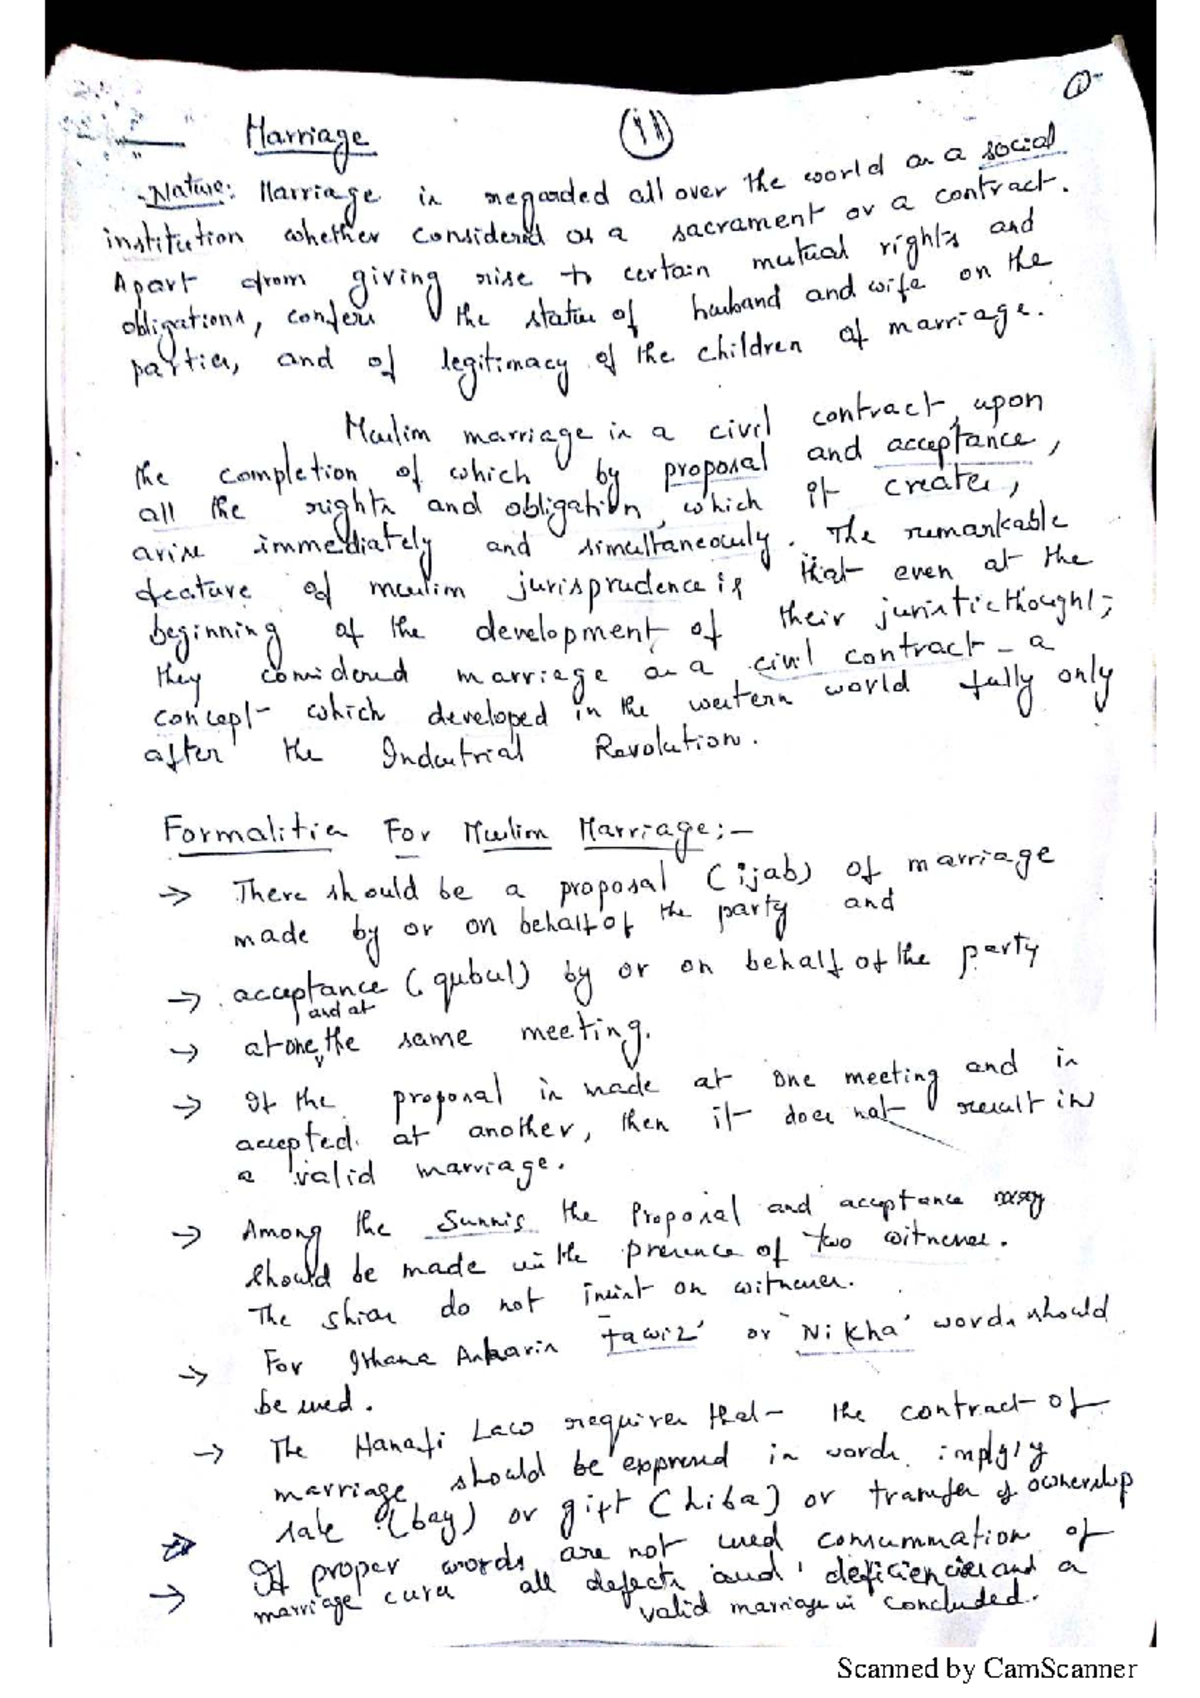 ①
Marriage
(11)
Nature: Marriage is regarded all over the world as a social
institution whether considered as a sacrament or a contract.
Apart from giving rise to certain mutual rights and
obligations, confers the status of husband and wife on the
parties, and of legitimacy of the children of marriage.
Muslim marriage is a civil contract, upon
the completion of which by proposal and acceptance,
all the rights and obligation, which it creates,
arise immediately and simultaneously. The remarkable
feature of muslim jurisprudence is that even at the
beginning of the development of their juristic thought;
they considered marriage as a civil contract - a
concept which developed in the western world fully only
after the Industrial Revolution.
Formalities For Muslim Marriage:-
→ There should be a proposal (ijab) of marriage
made by or on behalf of the party and
→ acceptance (qubul) by or on behalf of the party
and at
→ at one, the same meeting.
→ If the proposal is made at one meeting and is
accepted at another, then it does not result in
a valid marriage.
→ Among the Sunnis the Proposal and acceptance
should be made in the presence of two witnesses.
The shias do not insist on witnesses.
→ For Ithana Asharis 'Tawiz' or 'Nikha' words should
be used.
→ The Hanafi Law requires that the contract of
marriage should be expressed in words implyly
sale (bay) or gift (hiba) or transfer of ownership
→ If proper words are not used consummation of
→ marriage cures all defects and deficiencies and a
valid marriage is concluded.
Scanned by CamScanner